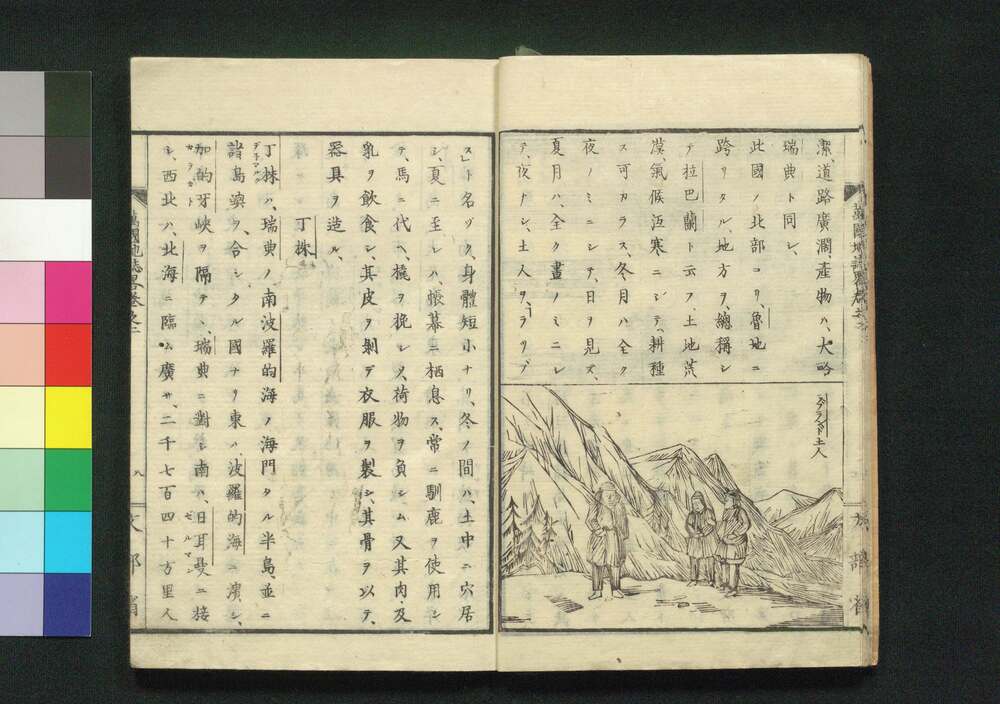 潔、道路廣濶、產物ハ、大略
瑞典ト同シ、
此國ノ北部ヨリ、魯地ニ
跨リタル、地方ヲ、總稱シ
テ拉巴蘭ト云フ、土地荒
漠、氣候沍寒ニシテ、耕種
ス可カラス、冬月ハ、全ク
夜ノミニシテ、日ヲ見ズ、
夏月ハ、全ク晝ノミニレ
テ、夜ナシ、土人ヲ、ラツプ
ラプランド土人
スト名ヅク、身體短小ナリ、冬ノ間ハ、土中ニ穴居
シ、夏ニ至レハ、帳幕ニ栖息ス、常ニ馴鹿ヲ使用シ
テ、馬ニ代ヘ、橇ヲ挽シメ、荷物ヲ負シム、又其肉、及
乳ヲ飲食シ、其皮ヲ剝デ衣服ヲ製シ、其骨ヲ以テ、
器具ヲ造ル、
丁抹
丁抹ハ、瑞典ノ南、波羅的海ノ海門タル半島、並ニ
デンマルク
諸島嶼ヲ、合シタル國ナリ、東ハ、波羅的海ニ濱シ、
加的牙峽ヲ隔テヽ、瑞典ニ對シ、南ハ、日耳曼ニ接
カテガト
ゼルマン
シ、西北ハ、北海ニ臨ム、廣サ、二千七百四十方里、人
萬國地誌畧卷之二
八
文部省